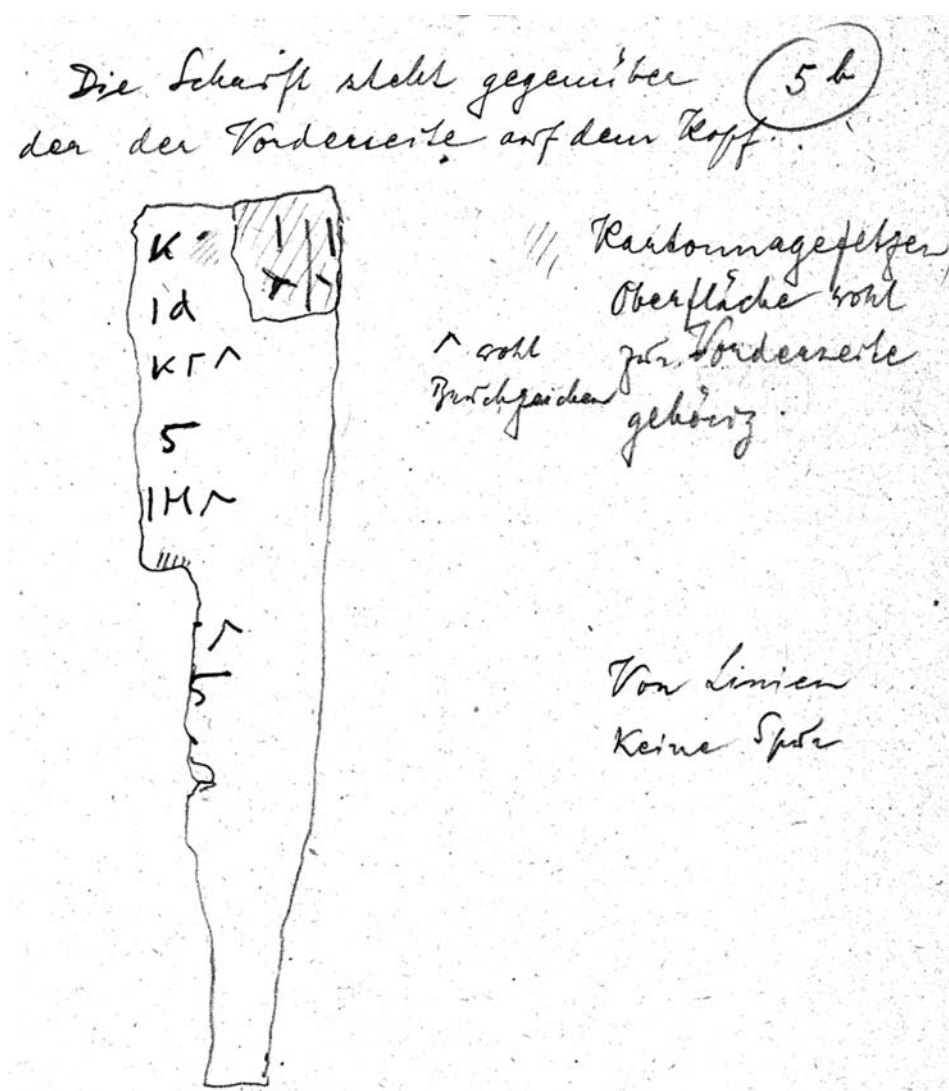 Die Schrift steht gegenüber
der der Vorderseite auf dem Kopf.
5b
Kartonnagefetzen
Oberfläche wohl
zur Vorderseite
gehörig.
Λ wohl
Bruchzeichen
Κ
Ια
ΚΓΛ
5
ΙΗΛ
Λ
5
Von Linien
Keine Spur